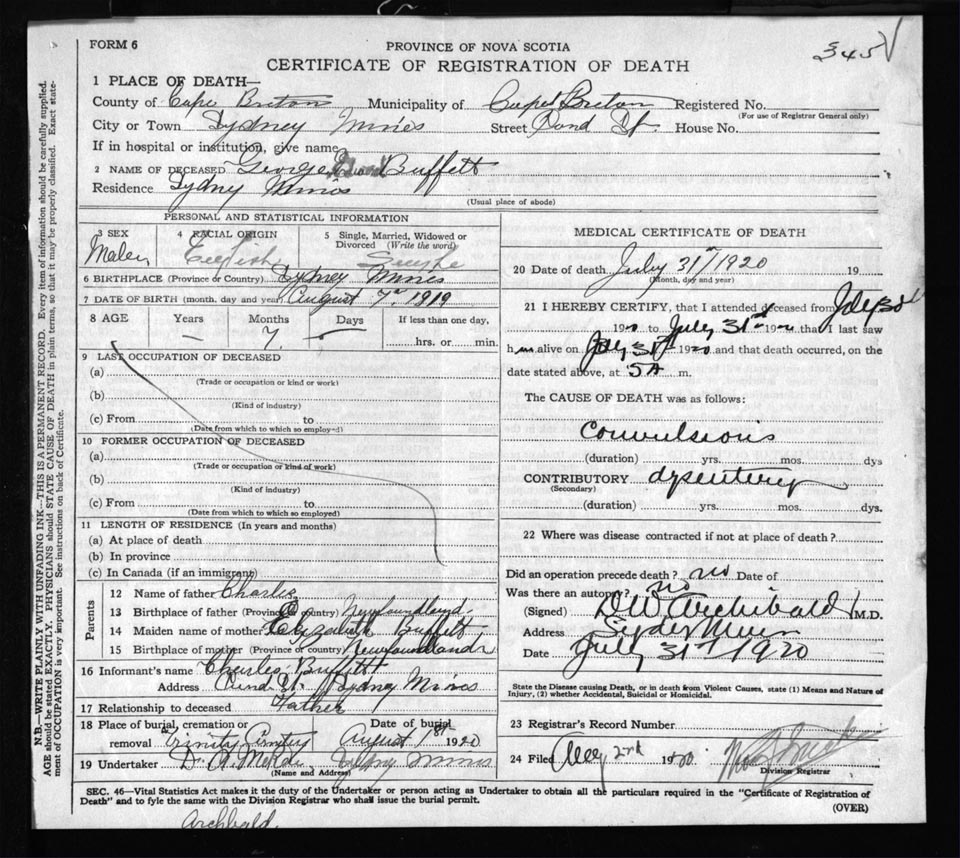 FORM 6
345
PROVINCE OF NOVA SCOTIA
CERTIFICATE OF REGISTRATION OF DEATH
1 PLACE OF DEATH—
County of Cape Breton Municipality of Cape Breton Registered No.
(For use of Registrar General only)
City or Town Sydney Mines Street Pond St. House No.
If in hospital or institution, give name
2 NAME OF DECEASED George Buffett
Residence Sydney Mines
(Usual place of abode)
PERSONAL AND STATISTICAL INFORMATION
3 SEX 4 RACIAL ORIGIN 5 Single, Married, Widowed or Divorced (Write the word)
Male English Single
6 BIRTHPLACE (Province or Country) Sydney Mines
7 DATE OF BIRTH (month, day and year) August 7th 1919
8 AGE Years Months Days If less than one day,
— 7 — hrs. or min.
9 LAST OCCUPATION OF DECEASED
(a)
(Trade or occupation or kind or work)
(b)
(Kind of industry)
(c) From to
(Date from which to which so employed)
10 FORMER OCCUPATION OF DECEASED
(a)
(Trade or occupation or kind of work)
(b)
(Kind of industry)
(c) From to
(Date from which to which so employed)
11 LENGTH OF RESIDENCE (In years and months)
(a) At place of death
(b) In province
(c) In Canada (if an immigrant)
Parents
12 Name of father Charles
13 Birthplace of father (Province or country) Newfoundland
14 Maiden name of mother Elizabeth Buffett
15 Birthplace of mother (Province or country) Newfoundland
16 Informant's name Charles Buffett
Address Pond St. Sydney Mines
17 Relationship to deceased Father
18 Place of burial, cremation or Date of burial
removal Trinity Cemetery August 1st 1920
19 Undertaker Sydney Mines
(Name and Address)
MEDICAL CERTIFICATE OF DEATH
20 Date of death July 31st 1920 19
(Month, day and year)
21 I HEREBY CERTIFY, that I attended deceased from July 30th
1920 to July 31st 1920 that I last saw
him alive on July 31st 1920 and that death occurred, on the
date stated above, at 5 A m.
The CAUSE OF DEATH was as follows:
Convulsions
(duration) yrs. mos. dys
CONTRIBUTORY dysentery
(Secondary)
(duration) yrs. mos. dys.
22 Where was disease contracted if not at place of death?
Did an operation precede death? no Date of
Was there an autopsy? no
(Signed) D W Archibald M.D.
Address Sydney Mines
Date July 31st 1920
State the Disease causing Death, or in death from Violent Causes, state (1) Means and Nature of
Injury, (2) whether Accidental, Suicidal or Homicidal.
23 Registrar's Record Number
24 Filed Aug 2nd 1920
Division Registrar
SEC. 46—Vital Statistics Act makes it the duty of the Undertaker or person acting as Undertaker to obtain all the particulars required in the "Certificate of Registration of
Death" and to fyle the same with the Division Registrar who shall issue the burial permit.
(OVER)
Archbald.
N.B.—WRITE PLAINLY WITH UNFADING INK—THIS IS A PERMANENT RECORD. Every item of information should be carefully supplied.
AGE should be stated EXACTLY. PHYSICIANS should STATE CAUSE OF DEATH in plain terms, so that it may be properly classified. Exact state-
ment of OCCUPATION is very important. See instructions on back of Certificate.